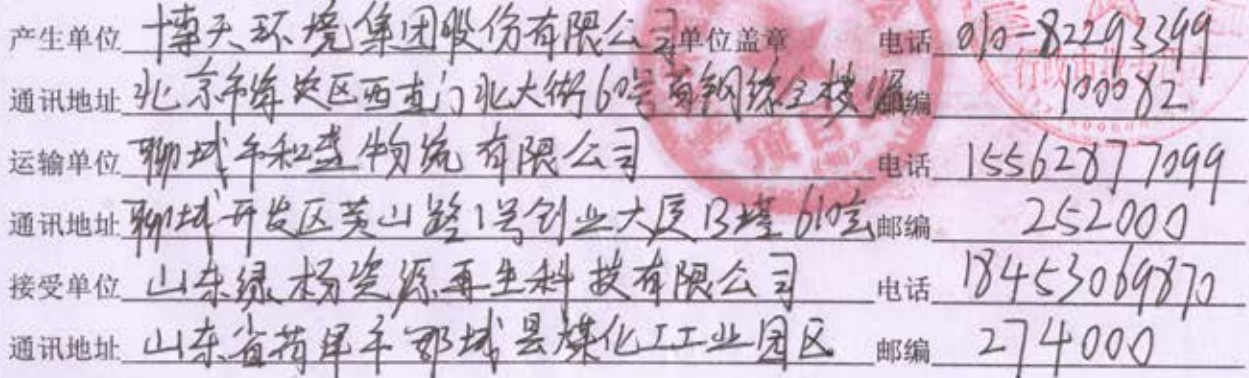 产生单位 博天环境集团股份有限公司 单位盖章 电话 010-82293399
通讯地址 北京市海淀区西直门北大街60号首钢综合楼 邮编 100082
运输单位 聊城市和盛物流有限公司 电话 15562877099
通讯地址 聊城开发区黄山路1号创业大厦B座610室 邮编 252000
接受单位 山东绿杨资源再生科技有限公司 电话 18453069870
通讯地址 山东省菏泽市鄄城县煤化工工业园区 邮编 274000
项目